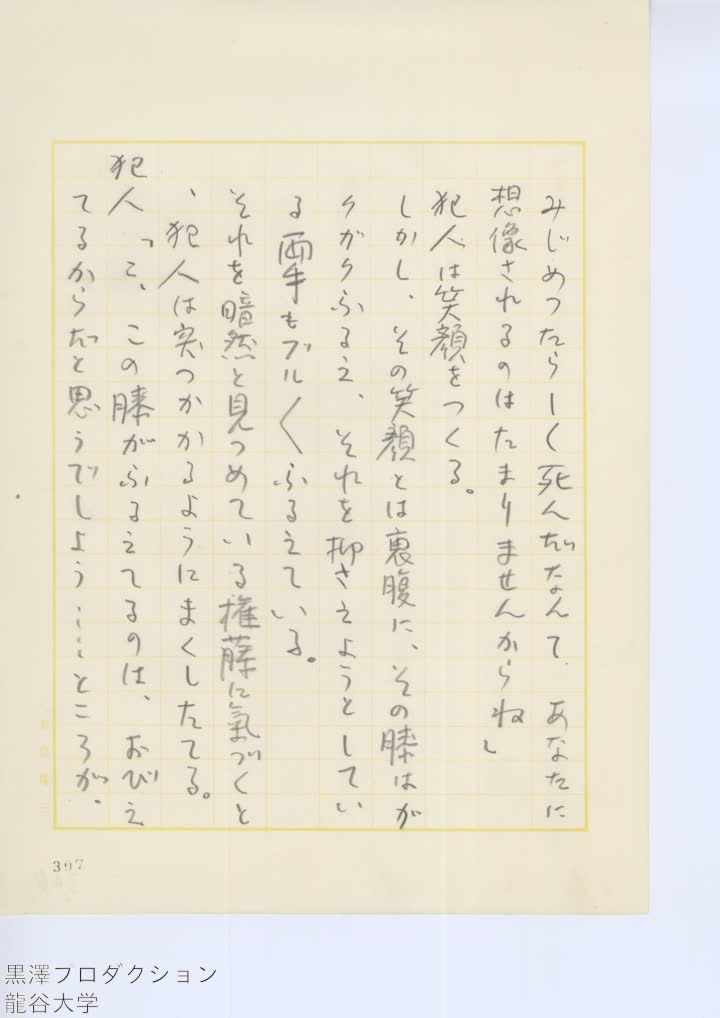 みじめつたらしく死んだなんて、あなたに
想像されるのはたまりませんからね」
犯人は笑顔をつくる。
しかし、その笑顔とは裏腹に、その膝はが
クガクふるえ、それを抑さえようとしてい
る両手もブル〱ふるえている。
それを暗然と見つめている権藤に氣づくと
、犯人は突つかかるようにまくしたてる。
犯人「こ、この膝がふるえてるのは、おびえ
てるからだと思うでしよう……ところが、
397
黒澤プロダクション
龍谷大学